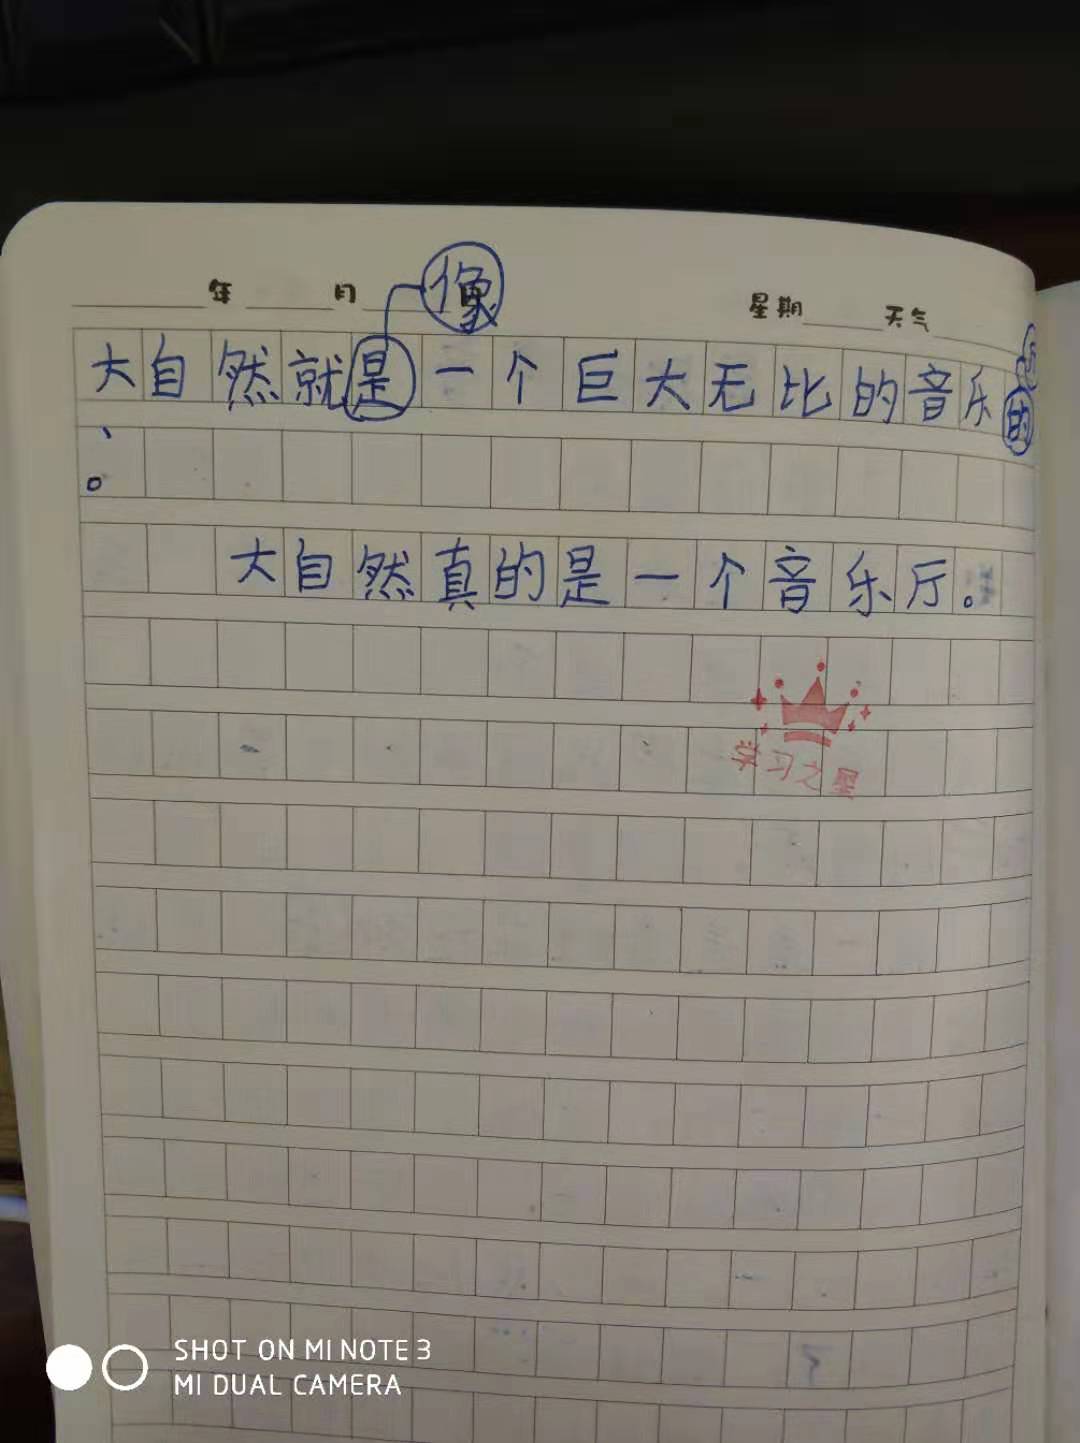 年 月
像
星期 天气
大自然就是一个巨大无比的音乐的
、
。
大自然真的是一个音乐厅。
学习之星
SHOT ON MI NOTE 3
MI DUAL CAMERA